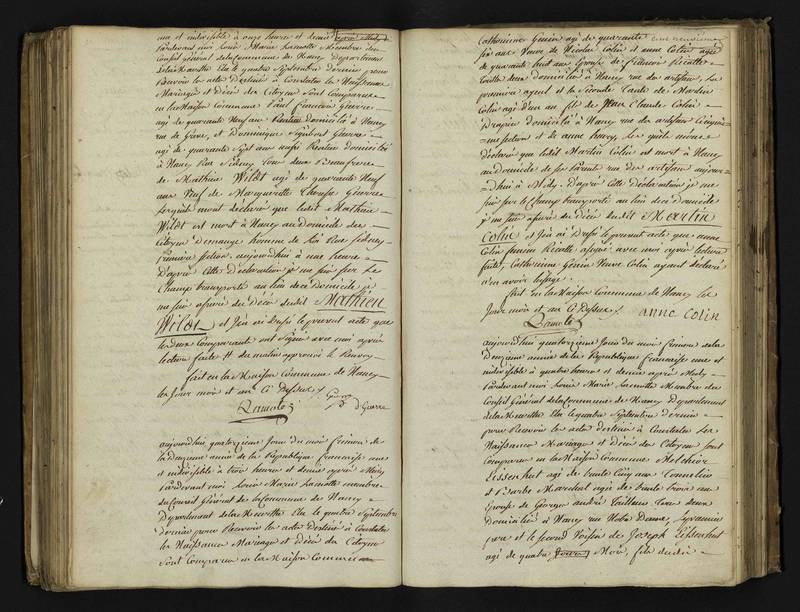 une et indivisible à onze heures et demie après Midy
Pardevant moi Louis Marie Lamotte Membre du
Conseil Général de la Commune de Nancy Département
de la Meurthe Elu le quatre Septembre dernier pour
Recevoir les actes Destinés à Constater les Naissances
Mariages et Décès des Citoyens Sont Comparus
en la Maison Commune Paul François Guerre
agé de quarante Neuf ans Rentier domicilié à Nancy
rue de Grève, et Dominique Sigisbert Guerre
agé de quarante Sept ans aussi Rentier domicilié
à Nancy Rue Sidney tous deux Beaufreres
de Mathieu Wildt agé de quarante Neuf
ans Veuf de Marguerite Guerre
Lesquels m'ont déclaré que ledit Mathieu
Wildt est mort à Nancy au domicile du
Citoyen Demange homme de loi Rue Sidney
première Section aujourd'hui à une heure
D'après Cette Déclaration je me suis sur le
Champ transporté au lieu de ce Domicile je
me suis assuré du Décès dudit Mathieu
Wildt et j'en ai Dressé le present acte que
les deux Comparants ont Signé avec moi après
lecture faite du matin approuvé le Renvoy
fait en la Maison Commune de Nancy
les Jour mois et an Ci Dessus
Guerre
Lamotte D Guerre
aujourd'huy quatorzieme Jour du mois frimaire de
la Deuxieme année de la République françaises une
et indivisible à trois heures et demie après Midy
Pardevant moi Louis Marie Lamotte membre
du Conseil Général de la Commune de Nancy
Département de la Meurthe Elu le quatre Septembre
dernier pour Recevoir les actes Destinés à Constater
les Naissances Mariages et Décès des Citoyens
Sont Comparus en la Maison Commune
Catherine Genin agé de quarante
six ans Veuve de Nicolas Colin et anne Colin agée
de quarante huit ans Epouse de François Ricatte
toutes deux Domiciliées à Nancy rue des artisans, La
première ayeul et la Seconde Tante de Martin
Colin agé d'un an fils de Jean Claude Colin
Drapier domicilié à Nancy rue des artisans
section et de anne lesquelles m'ont
déclaré que ledit Martin Colin est mort à Nancy
au domicile de ses Parents rue des artisans aujour
=d'hui à Midy. D'après Cette Déclaration je me
suis sur le Champ transporté au lieu de ce domicile
je me suis assuré du Décès dudit Martin
Colin et j'en ai Dressé le present acte que anne
Colin femme Ricatte a signé avec moi après lecture
faite, Catherine Genin Veuve Colin ayant déclaré
n'en avoir l'usage.
fait en la Maison Commune de Nancy les
Jour mois et an ci Dessus. anne Colin
Lamotte
aujourd'huy quatorzieme Jour du mois frimaire de la
Deuxieme année de la République française une et
indivisible à quatre heures et demie après Midy
Pardevant moi Louis Marie Lamotte Membre du
Conseil Général de la Commune de Nancy Département
de la Meurthe Elu le quatre Septembre dernier
pour Recevoir les actes Destinés à Constater les
Naissances Mariages et Décès des Citoyens sont
Comparus en la Maison Commune Melchior
Eissenhut agé de trente Cinq ans Tonnelier
et Barbe Marchal agée de trente trois ans
Epouse de George andré Tailleur tous deux
Domiciliés à Nancy rue Notre Dame, le premier
pere et le second Voisin de Joseph Eissenhut
agé de quatre Jours Mois, fils dudit